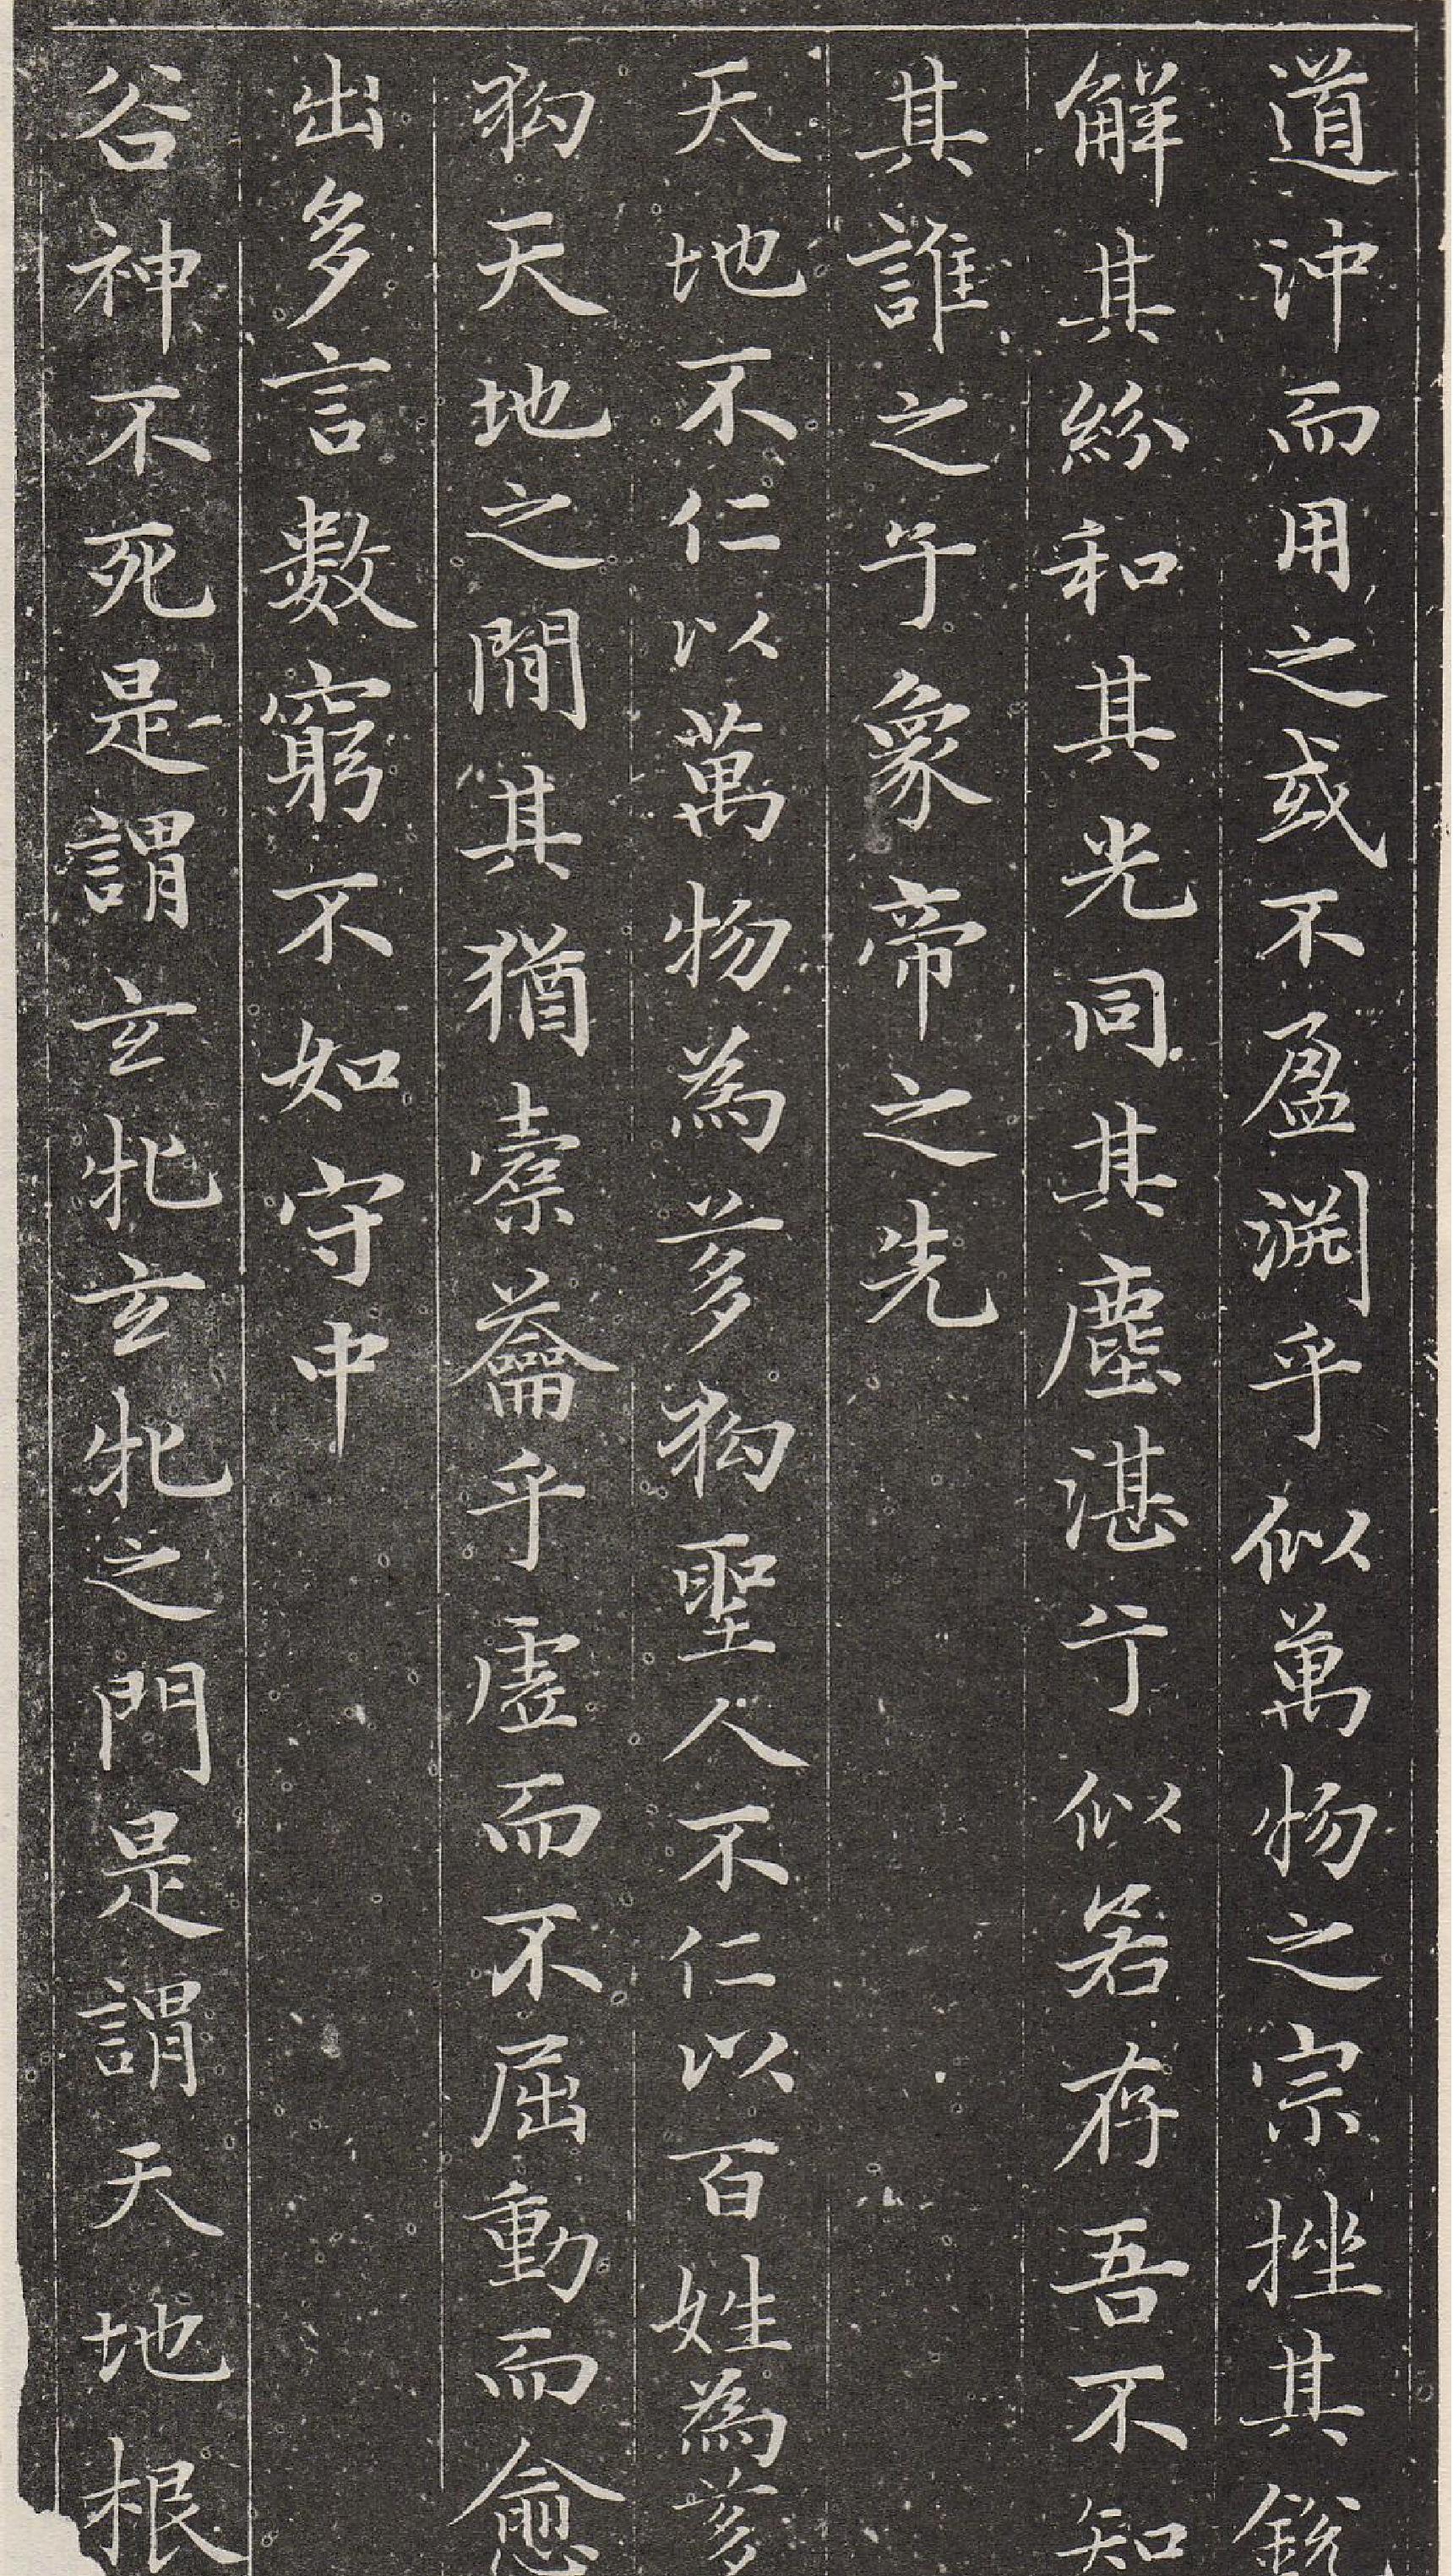 道沖而用之或不盈淵乎似萬物之宗挫其銳
解其紛和其光同其塵湛兮似若存吾不知
其誰之子象帝之先
天地不仁以萬物為芻狗聖人不仁以百姓為芻
狗天地之閒其猶橐籥乎虛而不屈動而愈
出多言數窮不如守中
谷神不死是謂玄牝玄牝之門是謂天地根